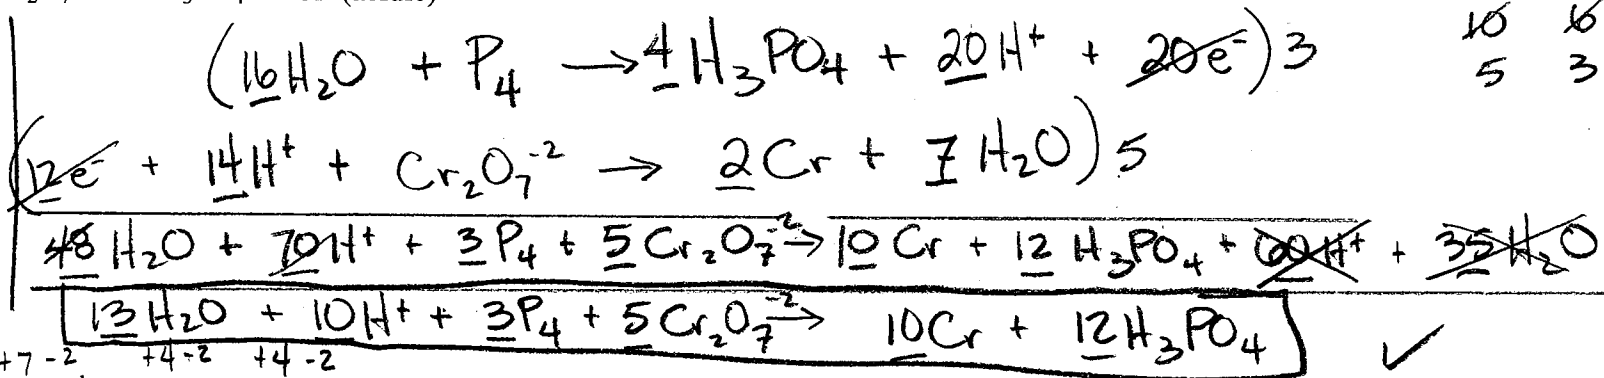 (16H₂O + P₄ → 4H₃PO₄ + 20H⁺ + 20e⁻)3 10 6
5 3
(12e⁻ + 14H⁺ + Cr₂O₇⁻² → 2Cr + 7H₂O)5
48H₂O + 70H⁺ + 3P₄ + 5Cr₂O₇⁻² → 10Cr + 12H₃PO₄ + 60H⁺ + 35H₂O
13H₂O + 10H⁺ + 3P₄ + 5Cr₂O₇⁻² → 10Cr + 12H₃PO₄ ✓
+7 -2 +4 -2 +4 -2